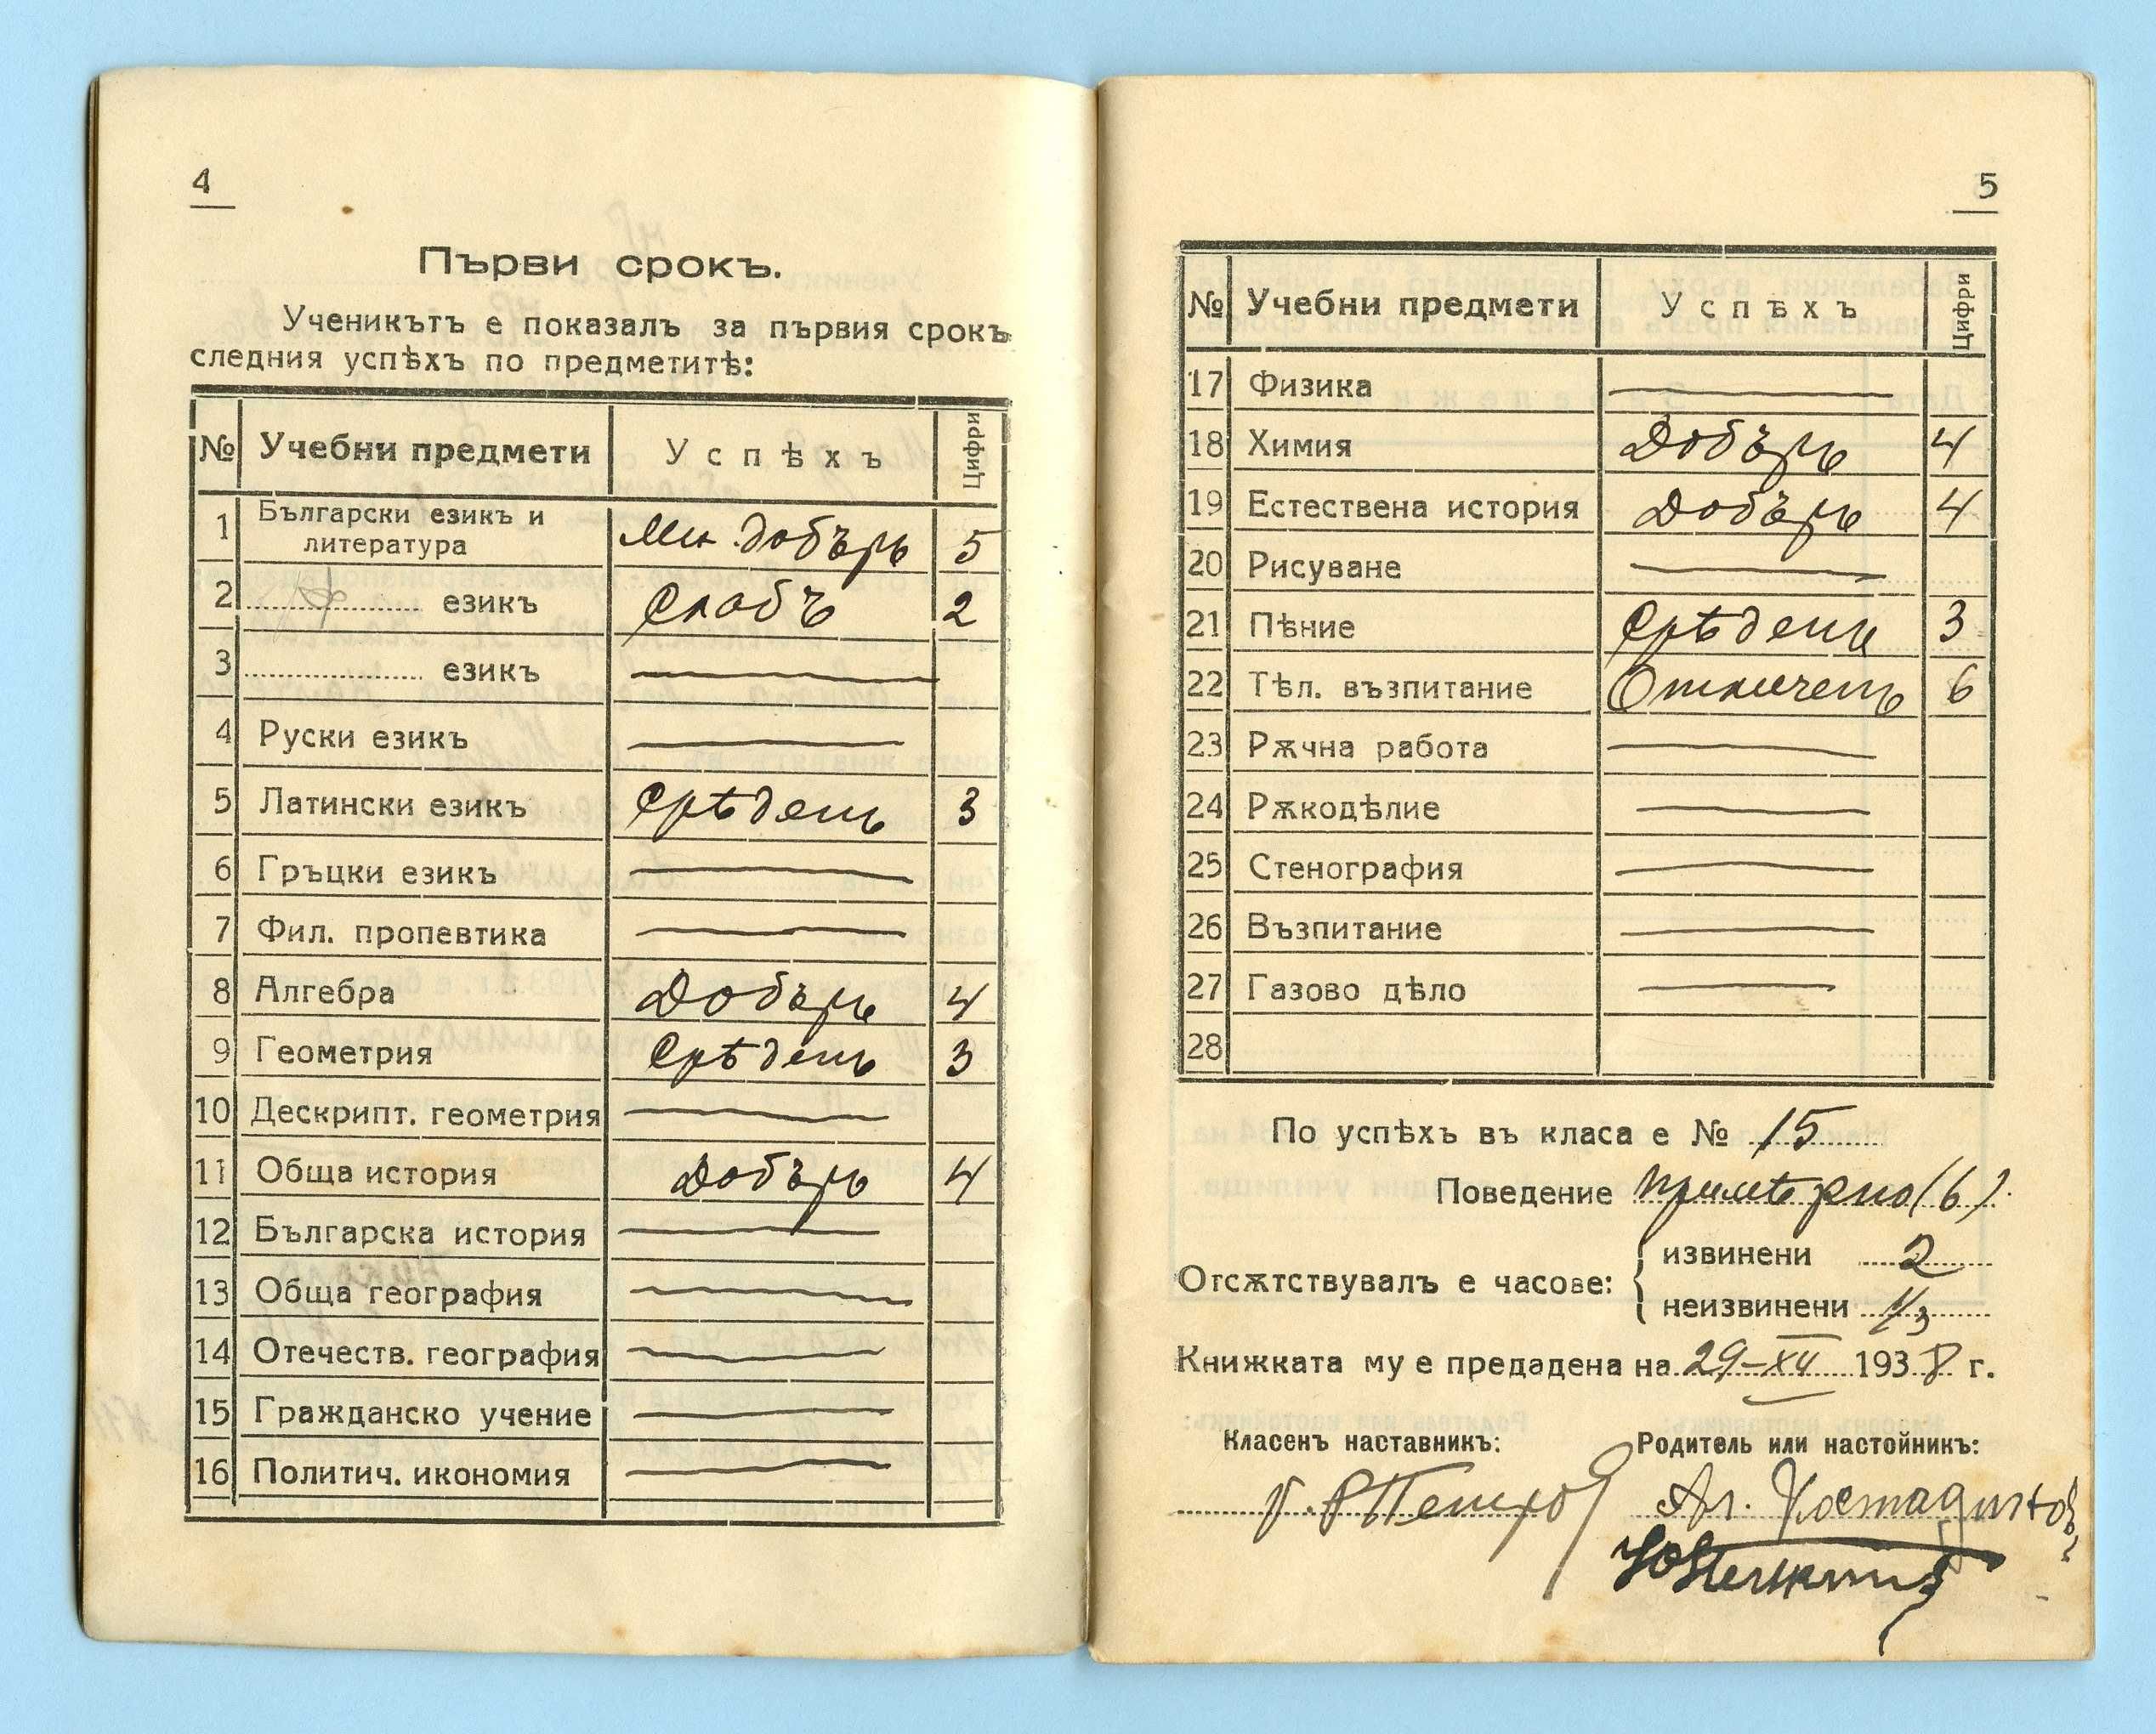 4
Първи срокъ.
Ученикътъ е показалъ за първия срокъ
следния успѣхъ по предметитѣ:
№ Учебни предмети Успѣхъ Цифри
1 Български езикъ и литература Мн. добъръ 5
2 езикъ Слабъ 2
3 езикъ
4 Руски езикъ
5 Латински езикъ Срѣденъ 3
6 Гръцки езикъ
7 Фил. пропевтика
8 Алгебра Добъръ 4
9 Геометрия Срѣденъ 3
10 Дескрипт. геометрия
11 Обща история Добъръ 4
12 Българска история
13 Обща география
14 Отечеств. география
15 Гражданско учение
16 Политич. икономия
5
№ Учебни предмети Успѣхъ Цифри
17 Физика
18 Химия Добъръ 4
19 Естествена история Добъръ 4
20 Рисуване
21 Пѣние Срѣденъ 3
22 Тѣл. възпитание Отличенъ 6
23 Рѫчна работа
24 Рѫкодѣлие
25 Стенография
26 Възпитание
27 Газово дѣло
28
По успѣхъ въ класа е № 15
Поведение примѣрно (6).
Отсѫтствувалъ е часове: извинени 2
неизвинени 1/3
Книжката му е предадена на 29-XII 1938 г.
Класенъ наставникъ: Родитель или настойникъ:
Петров Ал.